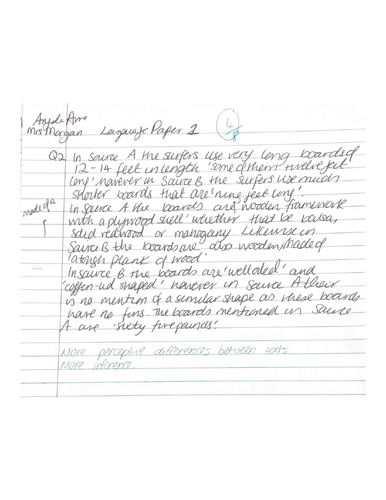 Mrs Morgan Language Paper 1
4
8
Q2 In Source A the surfers use very long boards of
12-14 feet in length 'some of them twelve feet
long' however in Source B the surfers use much
shorter boards that are 'nine feet long'.
made of a
In Source A the boards and wooden framework
with a plywood shell' whether that be balsa,
solid redwood or mahogany. Likewise in
Source B the boards are also wooden, made of
'a tough plank of wood'
In source B the boards are 'well oiled' and
'coffin-lid shaped' however in Source A there
is no mention of a similar shape as these boards
have no fins. The boards mentioned in Source
A are 'sixty five pounds'.
More perceptive differences between texts
More inference.